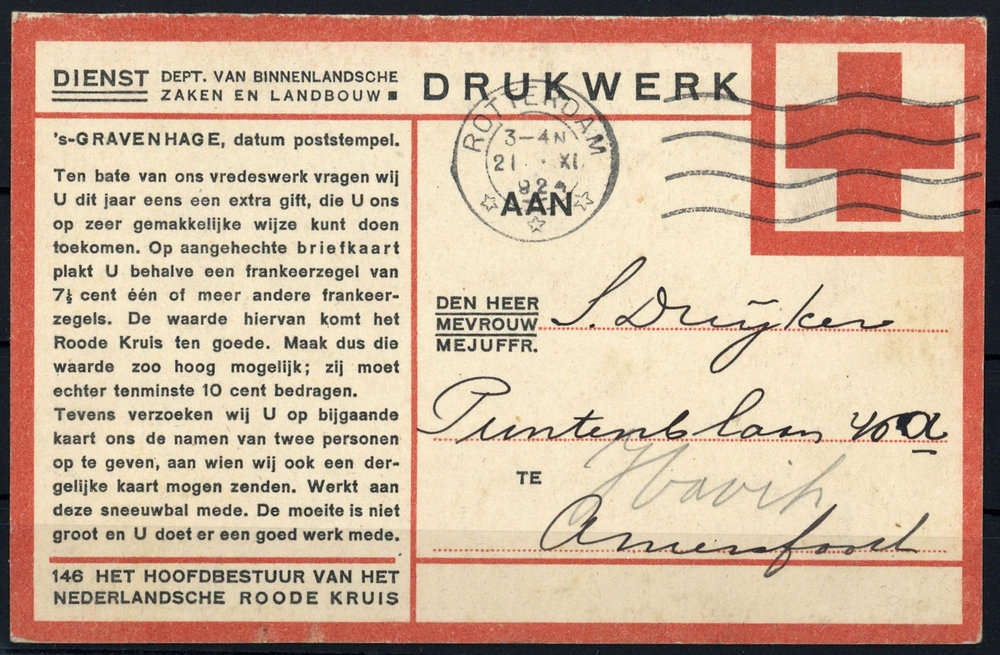 DIENST DEPT. VAN BINNENLANDSCHE
ZAKEN EN LANDBOUW
DRUKWERK
's-GRAVENHAGE, datum poststempel.
Ten bate van ons vredeswerk vragen wij
U dit jaar eens een extra gift, die U ons
op zeer gemakkelijke wijze kunt doen
toekomen. Op aangehechte briefkaart
plakt U behalve een frankeerzegel van
7½ cent één of meer andere frankeer-
zegels. De waarde hiervan komt het
Roode Kruis ten goede. Maak dus die
waarde zoo hoog mogelijk; zij moet
echter tenminste 10 cent bedragen.
Tevens verzoeken wij U op bijgaande
kaart ons de namen van twee personen
op te geven, aan wien wij ook een der-
gelijke kaart mogen zenden. Werkt aan
deze sneeuwbal mede. De moeite is niet
groot en U doet er een goed werk mede.
146 HET HOOFDBESTUUR VAN HET
NEDERLANDSCHE ROODE KRUIS
ROTTERDAM
3-4N
21 XI
192
AAN
DEN HEER
MEVROUW
MEJUFFR.
S. Druijker
Puntenblaan 40a
TE
Amersfoort